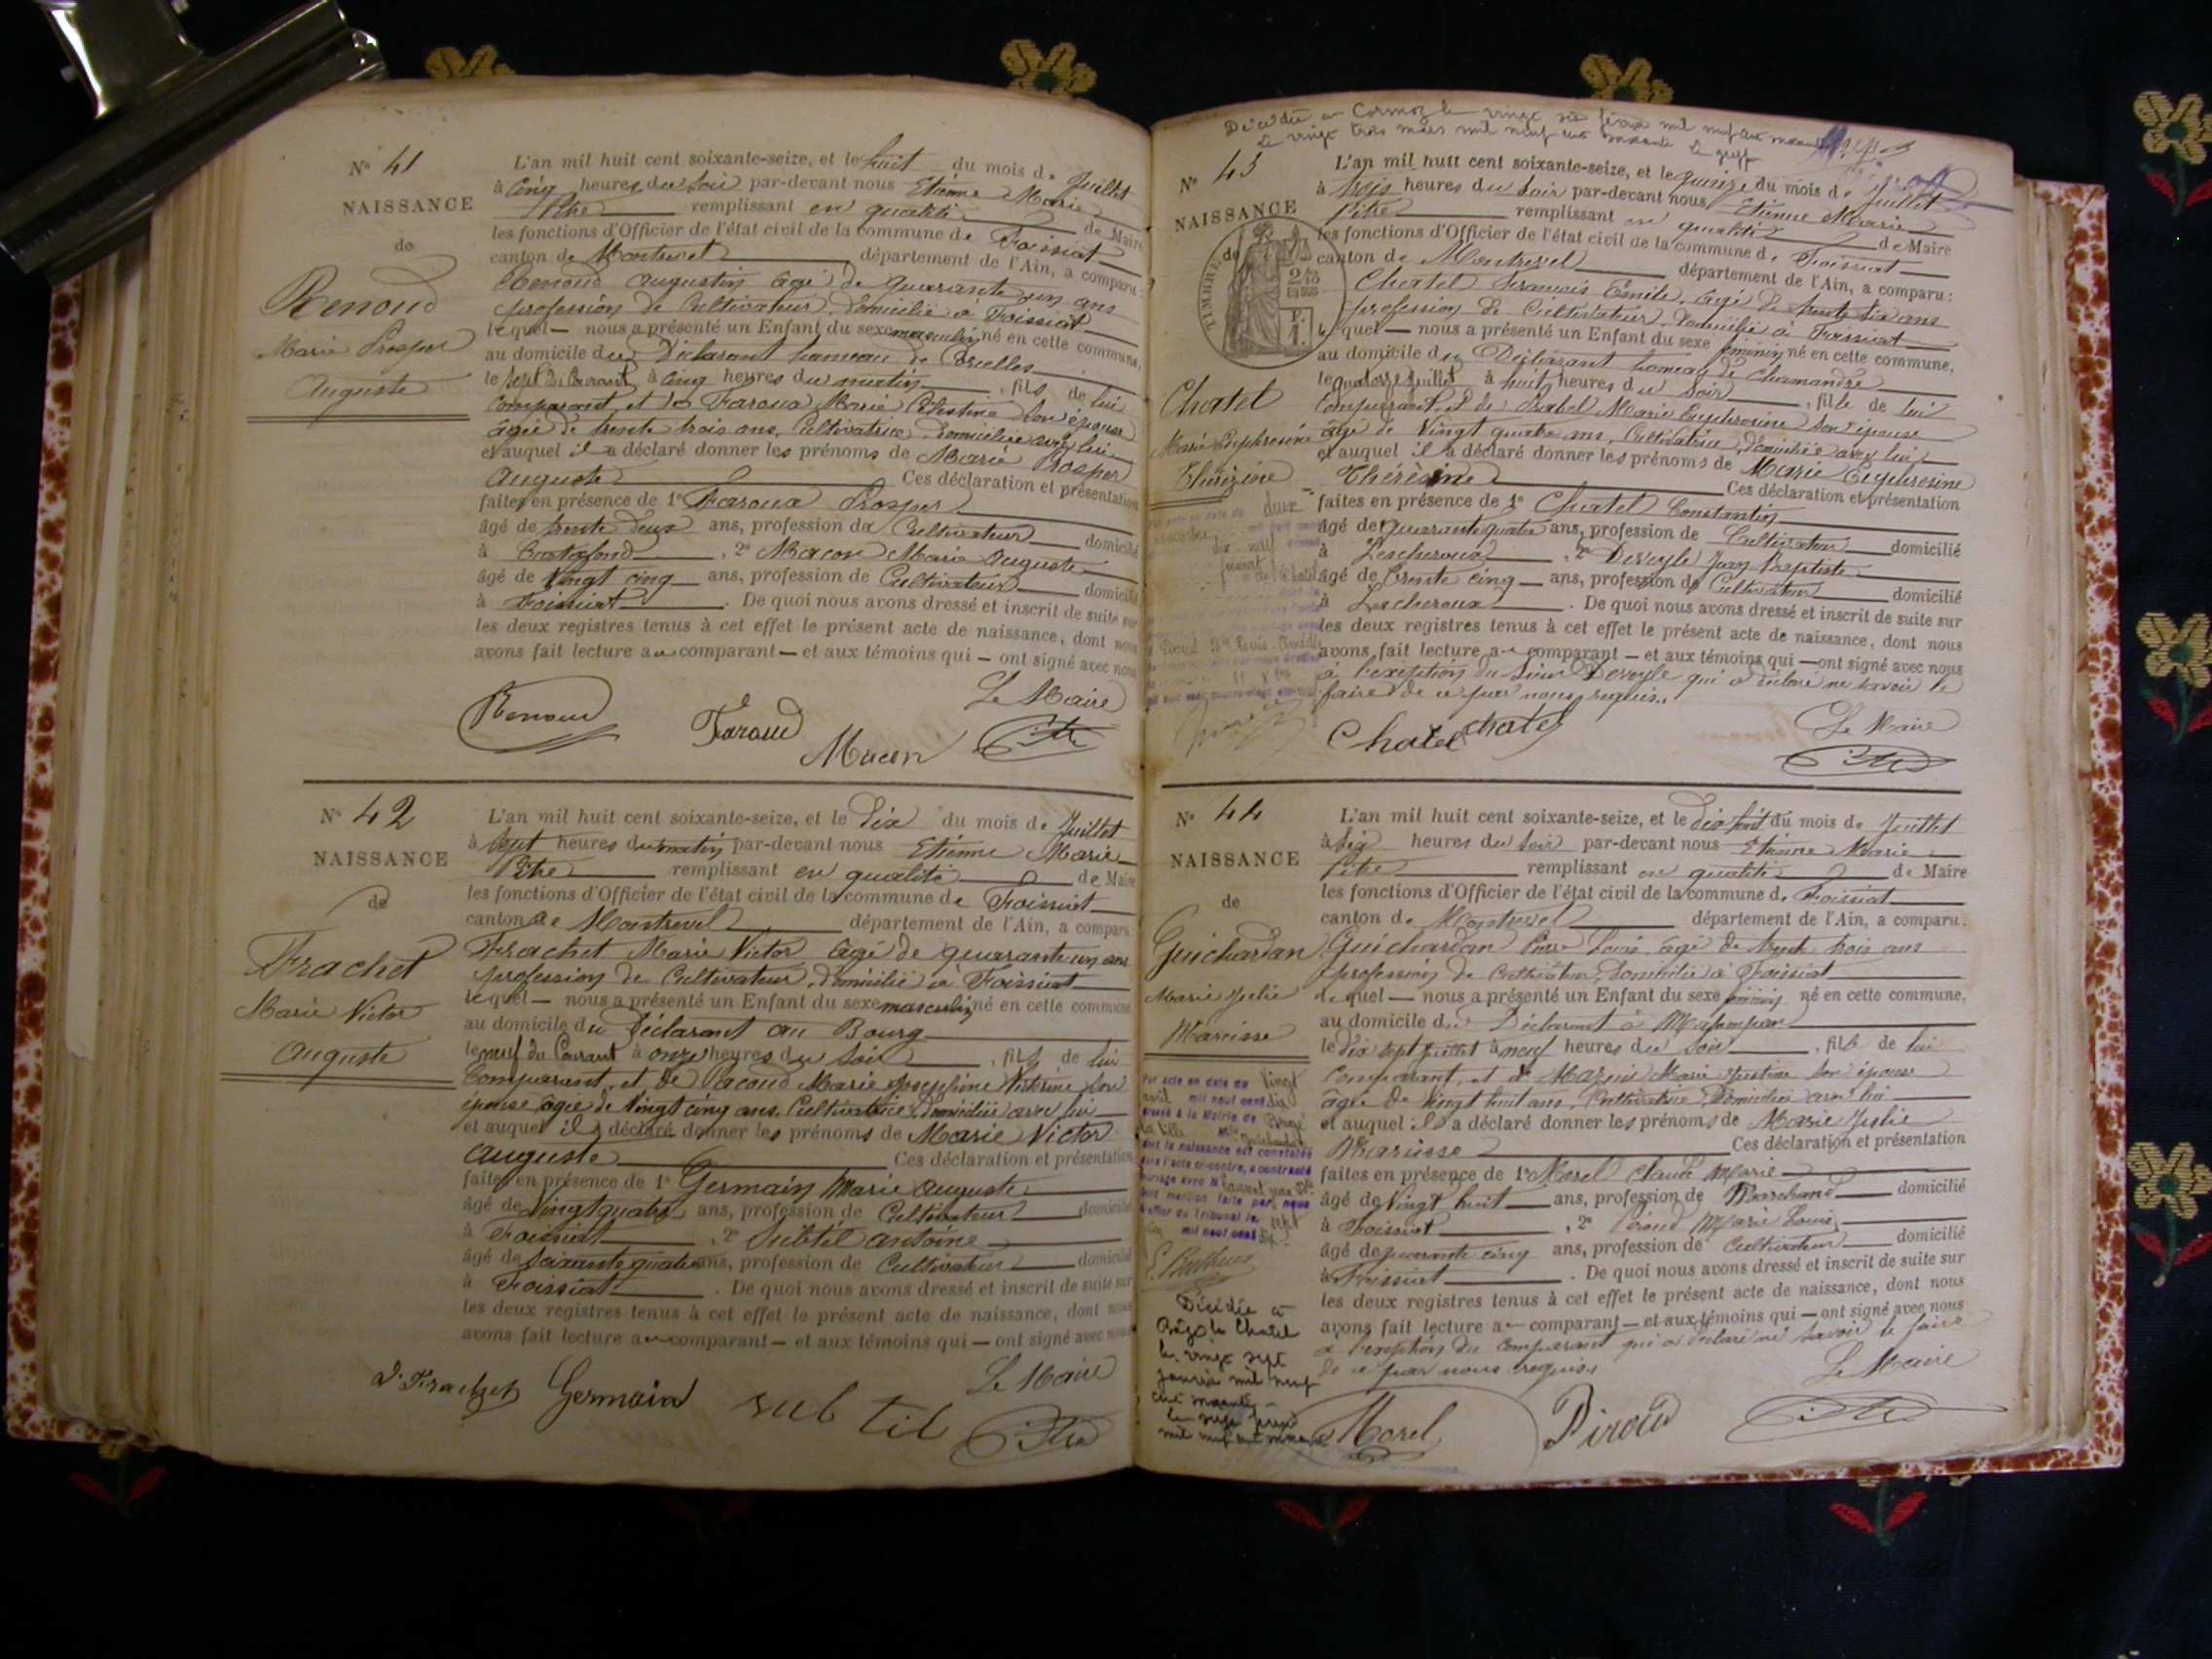 N° 41
NAISSANCE
de
Renoud
Marie Prosper
Auguste
L'an mil huit cent soixante-seize, et le huit du mois de Juillet
à Cinq heures du Soir par-devant nous Etienne Marie
Pitre remplissant en qualité de Maire
les fonctions d'Officier de l'état civil de la commune de Foissiat
canton de Montrevel département de l'Ain, a comparu :
Renoud Augustin âgé de quarante un ans
profession de Cultivateur, domicilié à Foissiat
lequel — nous a présenté un Enfant du sexe masculin né en cette commune,
au domicile du Déclarant hameau de
le sept du Courant à cinq heures du matin, fils de lui
Comparant et de Faroux Marie Célestine son épouse
âgée de trente trois ans, Cultivatrice, domiciliée avec lui
et auquel il a déclaré donner les prénoms de Marie Prosper
Auguste Ces déclaration et présentation
faites en présence de 1° Faroux Prosper
âgé de trente deux ans, profession de Cultivateur domicilié
à , 2° Macon Marie Auguste
âgé de Vingt cinq ans, profession de Cultivateur domicilié
à Foissiat . De quoi nous avons dressé et inscrit de suite sur
les deux registres tenus à cet effet le présent acte de naissance, dont nous
avons fait lecture au comparant — et aux témoins qui — ont signé avec nous
Le Maire
Renoud Faroud Macon Pitre
N° 42
NAISSANCE
de
Frachet
Marie Victor
Auguste
L'an mil huit cent soixante-seize, et le Dix du mois de Juillet
à Sept heures du matin par-devant nous Etienne Marie
Pitre remplissant en qualité de Maire
les fonctions d'Officier de l'état civil de la commune de Foissiat
canton de Montrevel département de l'Ain, a comparu :
Frachet Marie Victor âgé de quarante un ans
profession de Cultivateur, domicilié à Foissiat
lequel — nous a présenté un Enfant du sexe masculin né en cette commune
au domicile du Déclarant au Bourg
le neuf du Courant à onze heures du Soir, fils de lui
Comparant, et de Pacoud Marie Joséphine Victorine son
épouse âgée de Vingt cinq ans, Cultivatrice, domiciliée avec lui
et auquel il a déclaré donner les prénoms de Marie Victor
Auguste Ces déclaration et présentation
faites en présence de 1° Germain Marie Auguste
âgé de Vingt quatre ans, profession de Cultivateur domicilié
à Foissiat , 2° Subtil Antoine
âgé de soixante quatre ans, profession de Cultivateur domicilié
à Foissiat . De quoi nous avons dressé et inscrit de suite sur
les deux registres tenus à cet effet le présent acte de naissance, dont nous
avons fait lecture au comparant — et aux témoins qui — ont signé avec nous
Le Maire
Frachet Germain subtil Pitre
Décédée à Cormoz le vingt six février mil neuf cent
Le vingt trois mars mil neuf cent soixante Le greffier
N° 43
NAISSANCE
de
TIMBRE
Chatel
Marie Euphrosine
Thérézine
L'an mil huit cent soixante-seize, et le quinze du mois de Juillet
à trois heures du Soir par-devant nous Etienne Marie
Pitre remplissant en qualité de Maire
les fonctions d'Officier de l'état civil de la commune de Foissiat
canton de Montrevel département de l'Ain, a comparu :
Chatel François Emile, âgé de trente six ans
profession de Cultivateur, domicilié à Foissiat
lequel — nous a présenté un Enfant du sexe féminin né en cette commune,
au domicile du Déclarant hameau de Chamandré
le quatorze Juillet à huit heures du Soir, fille de lui
Comparant, et de Marie Euphrosine son épouse
âgée de Vingt quatre ans, Cultivatrice, domiciliée avec lui
et auquel il a déclaré donner les prénoms de Marie Euphrosine
Thérèsine Ces déclaration et présentation
faites en présence de 1° Chatel Constantin
âgé de quarante quatre ans, profession de Cultivateur domicilié
à Lescheroux , 2° Devoyle Jean Baptiste
âgé de trente cinq ans, profession de Cultivateur domicilié
à Lescheroux . De quoi nous avons dressé et inscrit de suite sur
les deux registres tenus à cet effet le présent acte de naissance, dont nous
avons fait lecture au comparant — et aux témoins qui — ont signé avec nous
à l'exception du Sieur Devoyle qui a déclaré ne savoir le
faire de ce par nous requis.
Le Maire
Chatel Chatel Pitre
N° 44
NAISSANCE
de
Guichardan
Marie Julie
Narcisse
L'an mil huit cent soixante-seize, et le dix huit du mois de Juillet
à Six heures du Soir par-devant nous Etienne Marie
Pitre remplissant en qualité de Maire
les fonctions d'Officier de l'état civil de la commune de Foissiat
canton de Montrevel département de l'Ain, a comparu.
Guichardan Pierre Louis âgé de trente trois ans
profession de Cultivateur, domicilié à Foissiat
lequel — nous a présenté un Enfant du sexe féminin né en cette commune,
au domicile du Déclarant à
le dix sept Juillet à neuf heures du Soir, fille de lui
Comparant, et de Marie Justine son épouse
âgée de Vingt huit ans, Cultivatrice, domiciliée avec lui
et auquel il a déclaré donner les prénoms de Marie Julie
Narcisse Ces déclaration et présentation
faites en présence de 1° Morel Claude Marie
âgé de Vingt huit ans, profession de Marchand domicilié
à Foissiat , 2° Piroud Marie Louis
âgé de quarante cinq ans, profession de Cultivateur domicilié
à Foissiat . De quoi nous avons dressé et inscrit de suite sur
les deux registres tenus à cet effet le présent acte de naissance, dont nous
avons fait lecture au comparant — et aux témoins qui — ont signé avec nous
à l'exception du comparant qui a déclaré ne savoir le faire
de ce par nous requis.
Le Maire
Morel Piroud Pitre
Par acte en date du vingt
avril mil neuf cent dix
dressé à la Mairie de Bâgé
la Ville Guichardan
dont la naissance est constatée
dans l'acte ci-contre, a contracté
mariage avec M
dont mention faite par nous
greffier du Tribunal le sept
juin mil neuf cent dix
Décédée à
Bâgé le Chatel
le vingt sept
janvier mil neuf
cent